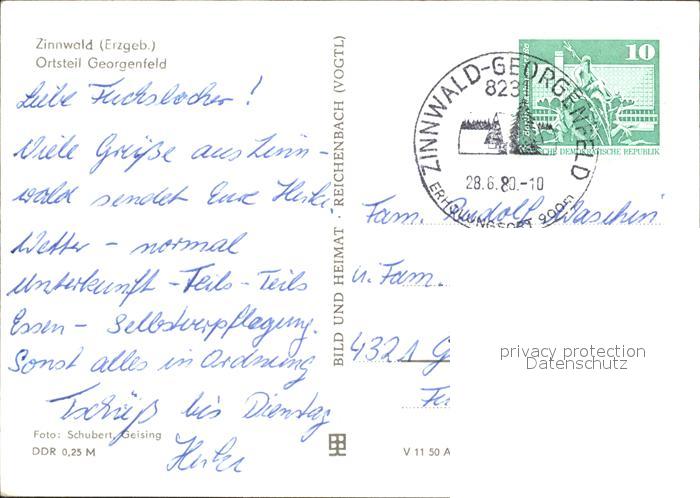 Zinnwald (Erzgeb.)
Ortsteil Georgenfeld
Liebe Fuchsbacher!
Viele Grüße aus Zinn-
wald sendet Euch Heike.
Wetter - normal
Unterkunft - Teils - Teils
Essen - Selbstverpflegung.
Sonst alles in Ordnung
Tschüß bis Dienstag
Heike
Foto: Schubert, Geising
DDR 0,25 M
BILD UND HEIMAT · REICHENBACH (VOGTL)
V 11 50 A
10
DEUTSCHE DEMOKRATISCHE REPUBLIK
ZINNWALD-GEORGENFELD
8231
28.6.80.-10
ERHOLUNGSORT 900m
Fam. Rudolf
u. Fam.
4321 G
privacy protection
Datenschutz